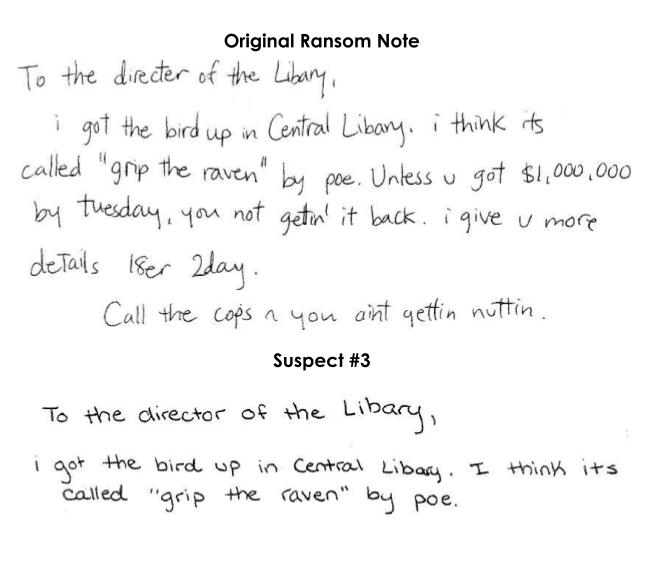 Original Ransom Note
To the directer of the Libary,
i got the bird up in Central Libary. i think its
called "grip the raven" by poe. Unless u got $1,000,000
by tuesday, you not getin' it back. i give u more
details l8er 2day.
Call the cops n you aint gettin nuttin.
Suspect #3
To the director of the Libary,
i got the bird up in Central Libary. I think its
called "grip the raven" by poe.